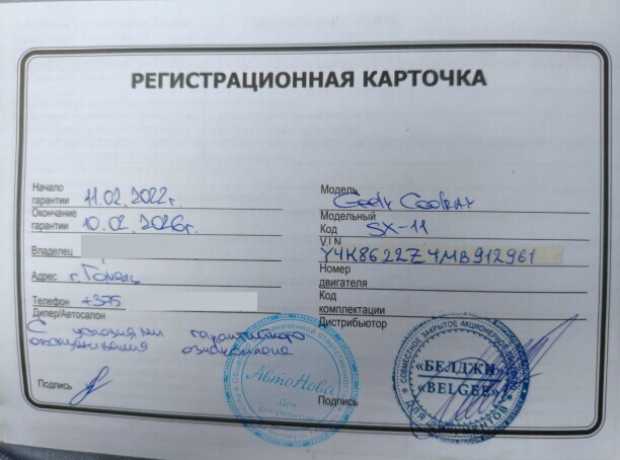 РЕГИСТРАЦИОННАЯ КАРТОЧКА
Начало
гарантии 11.02.2022г.
Окончание
гарантии 10.02.2026г.
Владелец
Адрес г. Гомель
Телефон +375
Дилер/Автосалон
С условиями гарантийного
обслуживания ознакомлена
Подпись
Модель Geely Coolray
Модельный
Код SX-11
VIN Y4K8622Z4MB912961
Номер
двигателя
Код
комплектации
Дистрибьютор
Подпись
АвтоНова
СОВМЕСТНОЕ ЗАКРЫТОЕ АКЦИОНЕРНОЕ
«БЕЛДЖИ»
«BELGEE»
ДЛЯ ДОКУМЕНТОВ